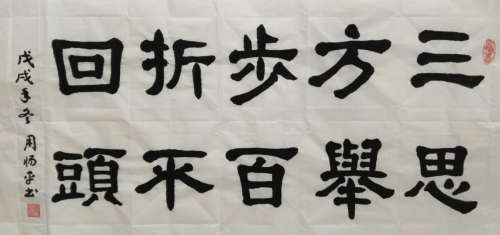 三思
方舉
步百
折不
回頭
戊戌年冬 周 书